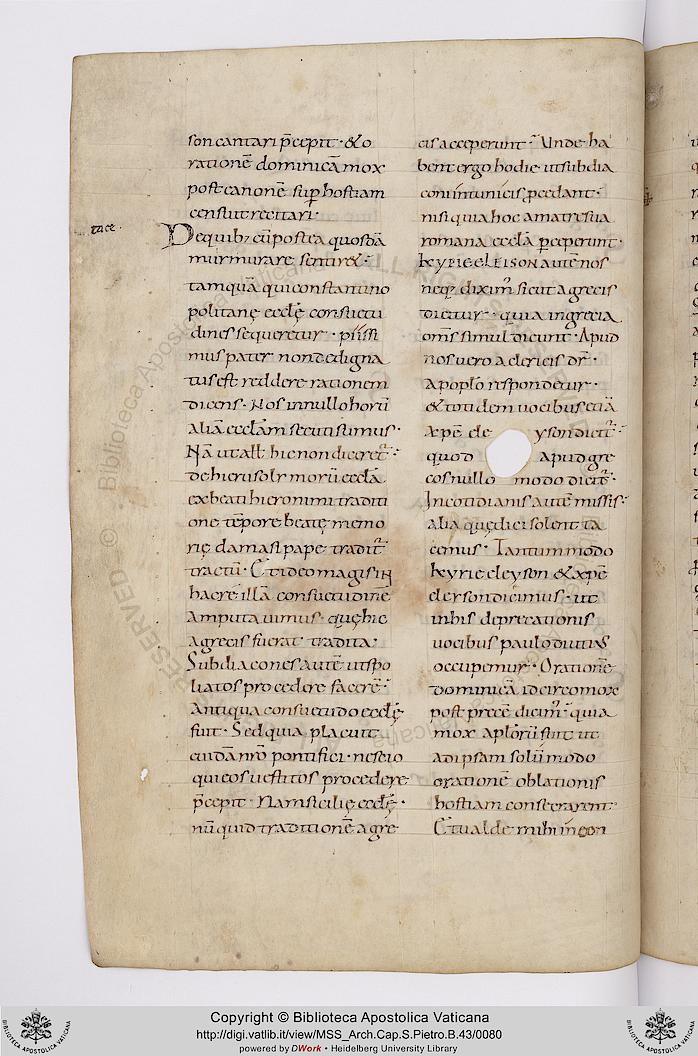 tace.
son cantari p̄cepit · & o
rationē dominicā mox
post canonē sup̱ hostiam
censuit recitari·
De quibꝫ cū postea quosdā
murmurare sentir&·
tamquā qui constantino
politanę ecclę consuetu
dines sequeretur · piissi
mus pater non dedigna
tus est reddere rationem
dicens · Nos in nullo horū
aliā ecclam secuti sumus·
Nā ut all. hic non dicer̄et·
de hierusolẏmorū eccla
ex beati hieronimi traditi
one tēpore beatę memo
rię damasi pape tradit̄
tractū · Et ideo magis iN
hac re illā consuetudinē
amputavimus · quę hic
a grecis fuerat tradita·
Subdiacones autē ut spo
liatos procedere facerē·
Antiqua consuetudo ecclę
fuit · Sed quia placuit
cuidā nr̄o pontifici · nescio
qui eos vestitos procedere
p̄cepit · Nam sicilię ecclę·
nū quid traditionē a gre
cis acceperunt· Unde ha
bent ergo hodie ut subdia
coni in tunicis p̱cedant·
nisi quia hoc a matre sua
romana eccla p̱ceperunt·
KyRIE ELEISON autē nos
neqꝫ diximꝰ sicut a grecis
dicitur · quia in grecia
om̄s simul dicunt · Apud
nos vero a clericis dr̄·
a popło respondetur·
& totidem vocibus etiā
xp̄e ele yson dicit̄·
quod apud gre
cos nullo modo dicit̄·
In cotidianis autē missis·
alia quę dici solent ta
cemus · Tantum modo
kyrie eleyson & xp̄e
eleyson dicimus · ut
in his deprecationis
vocibus paulo diutiꝰ
occupemur · Orationē
dominicā idcirco mox
post precē dicimꝰ· quia
mox ap̄lorū fuit ut
ad ipsam solū modo
orationē oblationis
hostiam consecrarent·
Et valde mihi incon
Copyright © Biblioteca Apostolica Vaticana
http://digi.vatlib.it/view/MSS_Arch.Cap.S.Pietro.B.43/0080
powered by DWork · Heidelberg University Library